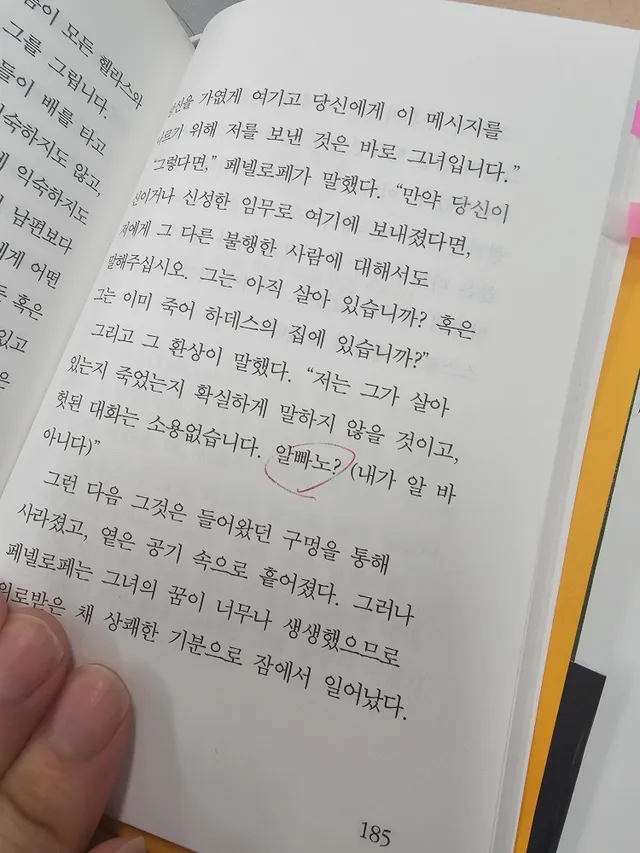 음이 모든 헬라스와
그를 그립니다.
들이 배를 타고
익숙하지도 않고,
익숙하지도
남편보다
에게 어떤
혹은
있고
은
당신을 가엾게 여기고 당신에게 이 메시지를
위해 저를 보낸 것은 바로 그녀입니다.”
“그렇다면,” 페넬로페가 말했다. “만약 당신이
신이거나 신성한 임무로 여기에 보내졌다면,
저에게 그 다른 불행한 사람에 대해서도
말해주십시오. 그는 아직 살아 있습니까? 혹은
그는 이미 죽어 하데스의 집에 있습니까?”
그리고 그 환상이 말했다. “저는 그가 살아
있는지 죽었는지 확실하게 말하지 않을 것이고,
헛된 대화는 소용없습니다. 알빠노? (내가 알 바
아니다)”
그런 다음 그것은 들어왔던 구멍을 통해
사라졌고, 옅은 공기 속으로 흩어졌다. 그러나
페넬로페는 그녀의 꿈이 너무나 생생했으므로
위로받은 채 상쾌한 기분으로 잠에서 일어났다.
185